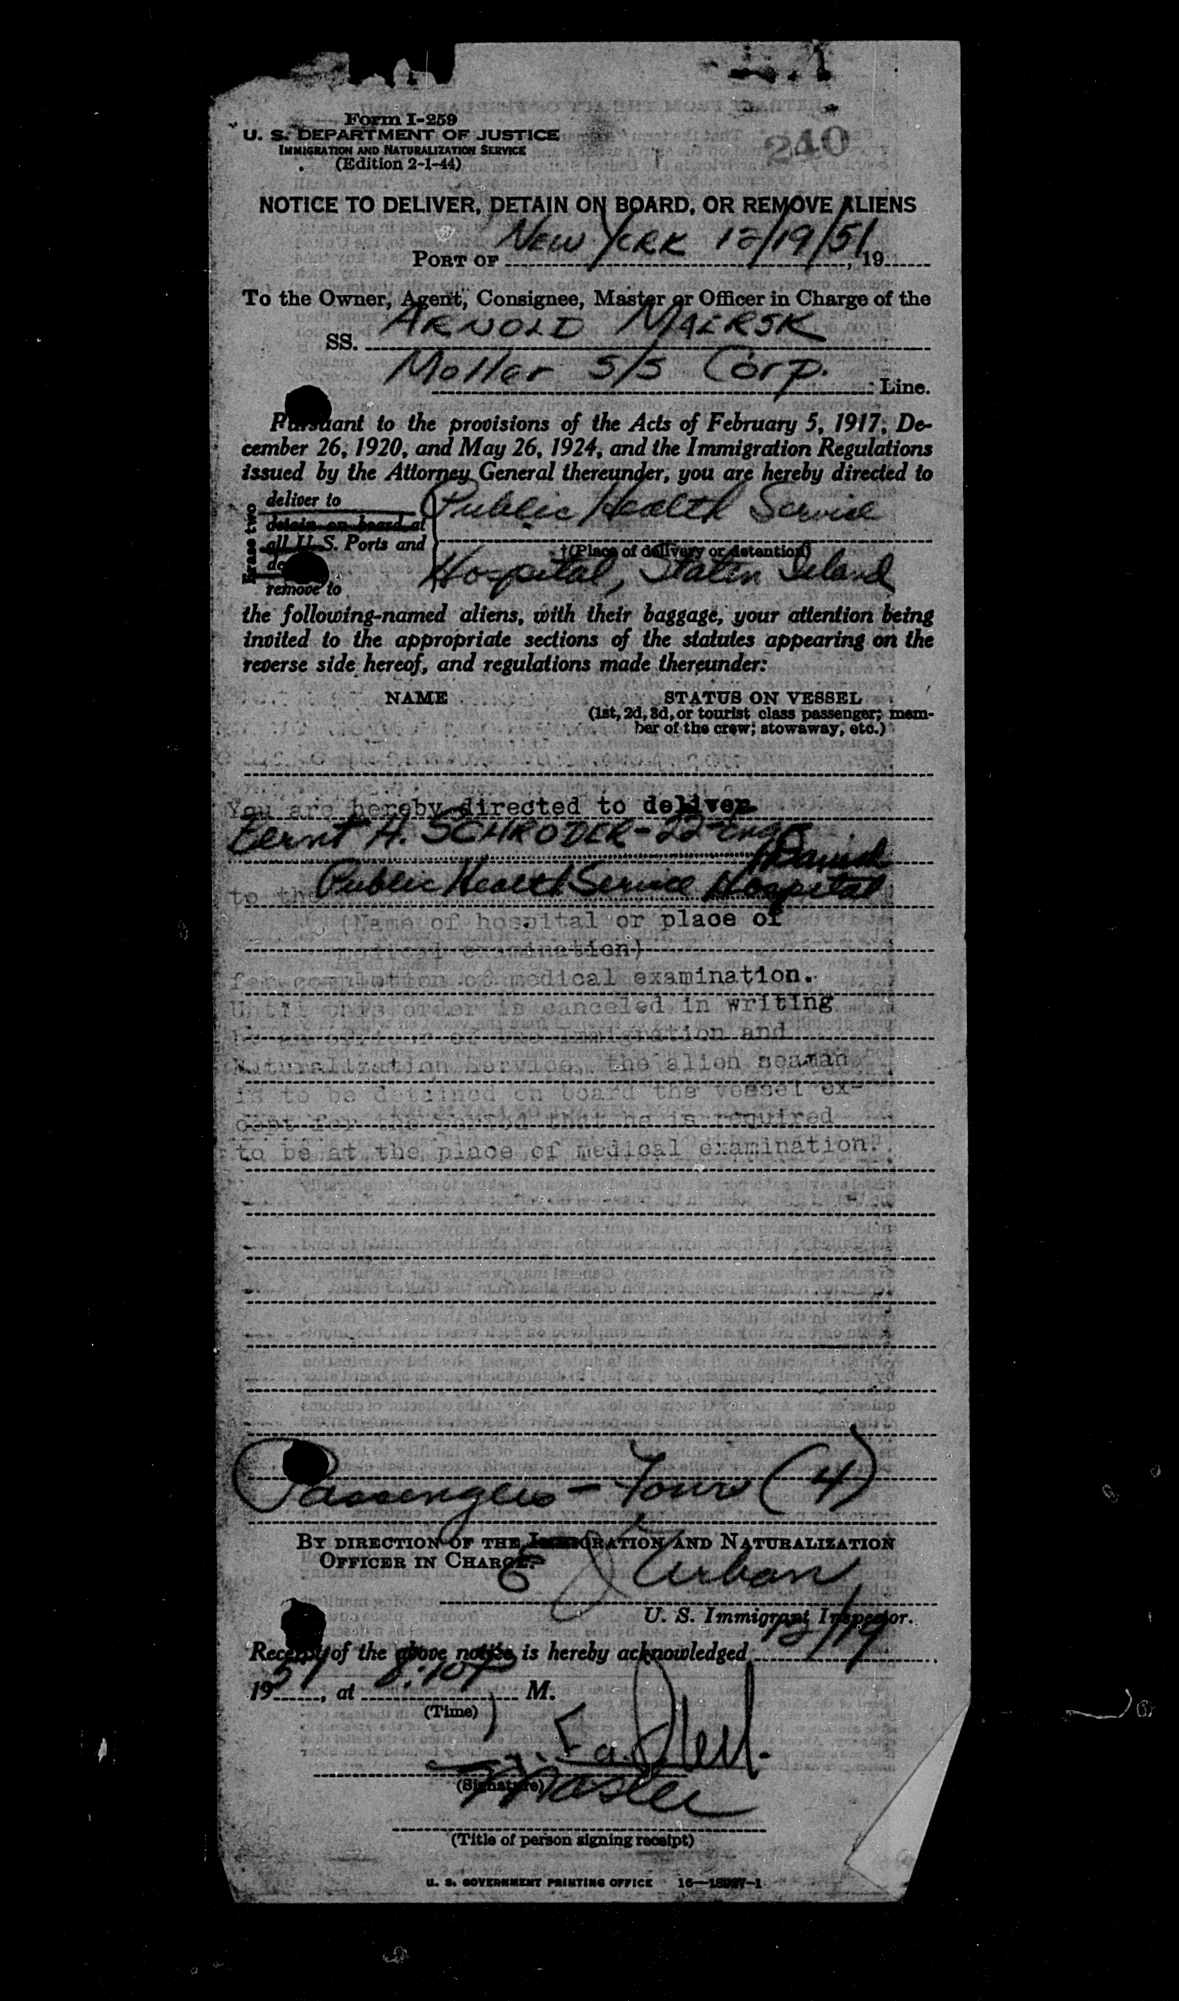 Form I-259
U. S. DEPARTMENT OF JUSTICE
IMMIGRATION AND NATURALIZATION SERVICE
(Edition 2-1-44)
240
NOTICE TO DELIVER, DETAIN ON BOARD, OR REMOVE ALIENS
PORT OF NEW YORK 12/19/51, 19
To the Owner, Agent, Consignee, Master or Officer in Charge of the
SS. ARNOLD MAERSK
Moller S/S Corp. Line.
Pursuant to the provisions of the Acts of February 5, 1917, De-
cember 26, 1920, and May 26, 1924, and the Immigration Regulations
issued by the Attorney General thereunder, you are hereby directed to
Erase two
deliver to
detain on board at
all U. S. Ports and
remove to
Public Health Service
†(Place of delivery or detention)
Hospital, Staten Island
the following-named aliens, with their baggage, your attention being
invited to the appropriate sections of the statutes appearing on the
reverse side hereof, and regulations made thereunder:
NAME
STATUS ON VESSEL
(1st, 2d, 3d, or tourist class passenger; mem-
ber of the crew; stowaway, etc.)
You are hereby directed to deliver
A. SCHRODER - 2d Eng
to the Public Health Service Hospital
(Name of hospital or place of
medical examination)
for completion of medical examination.
Until this order is canceled in writing
by an officer of the Immigration and
Naturalization Service, the alien seaman
is to be detained on board the vessel ex-
cept for the period that he is required
to be at the place of medical examination.
Passengers - Four (4)
BY DIRECTION OF THE IMMIGRATION AND NATURALIZATION
OFFICER IN CHARGE:
Urban
U. S. Immigrant Inspector.
Receipt of the above notice is hereby acknowledged 12/19
1951, at 8:10 P M.
(Time)
(Signature)
Master
(Title of person signing receipt)
U. S. GOVERNMENT PRINTING OFFICE